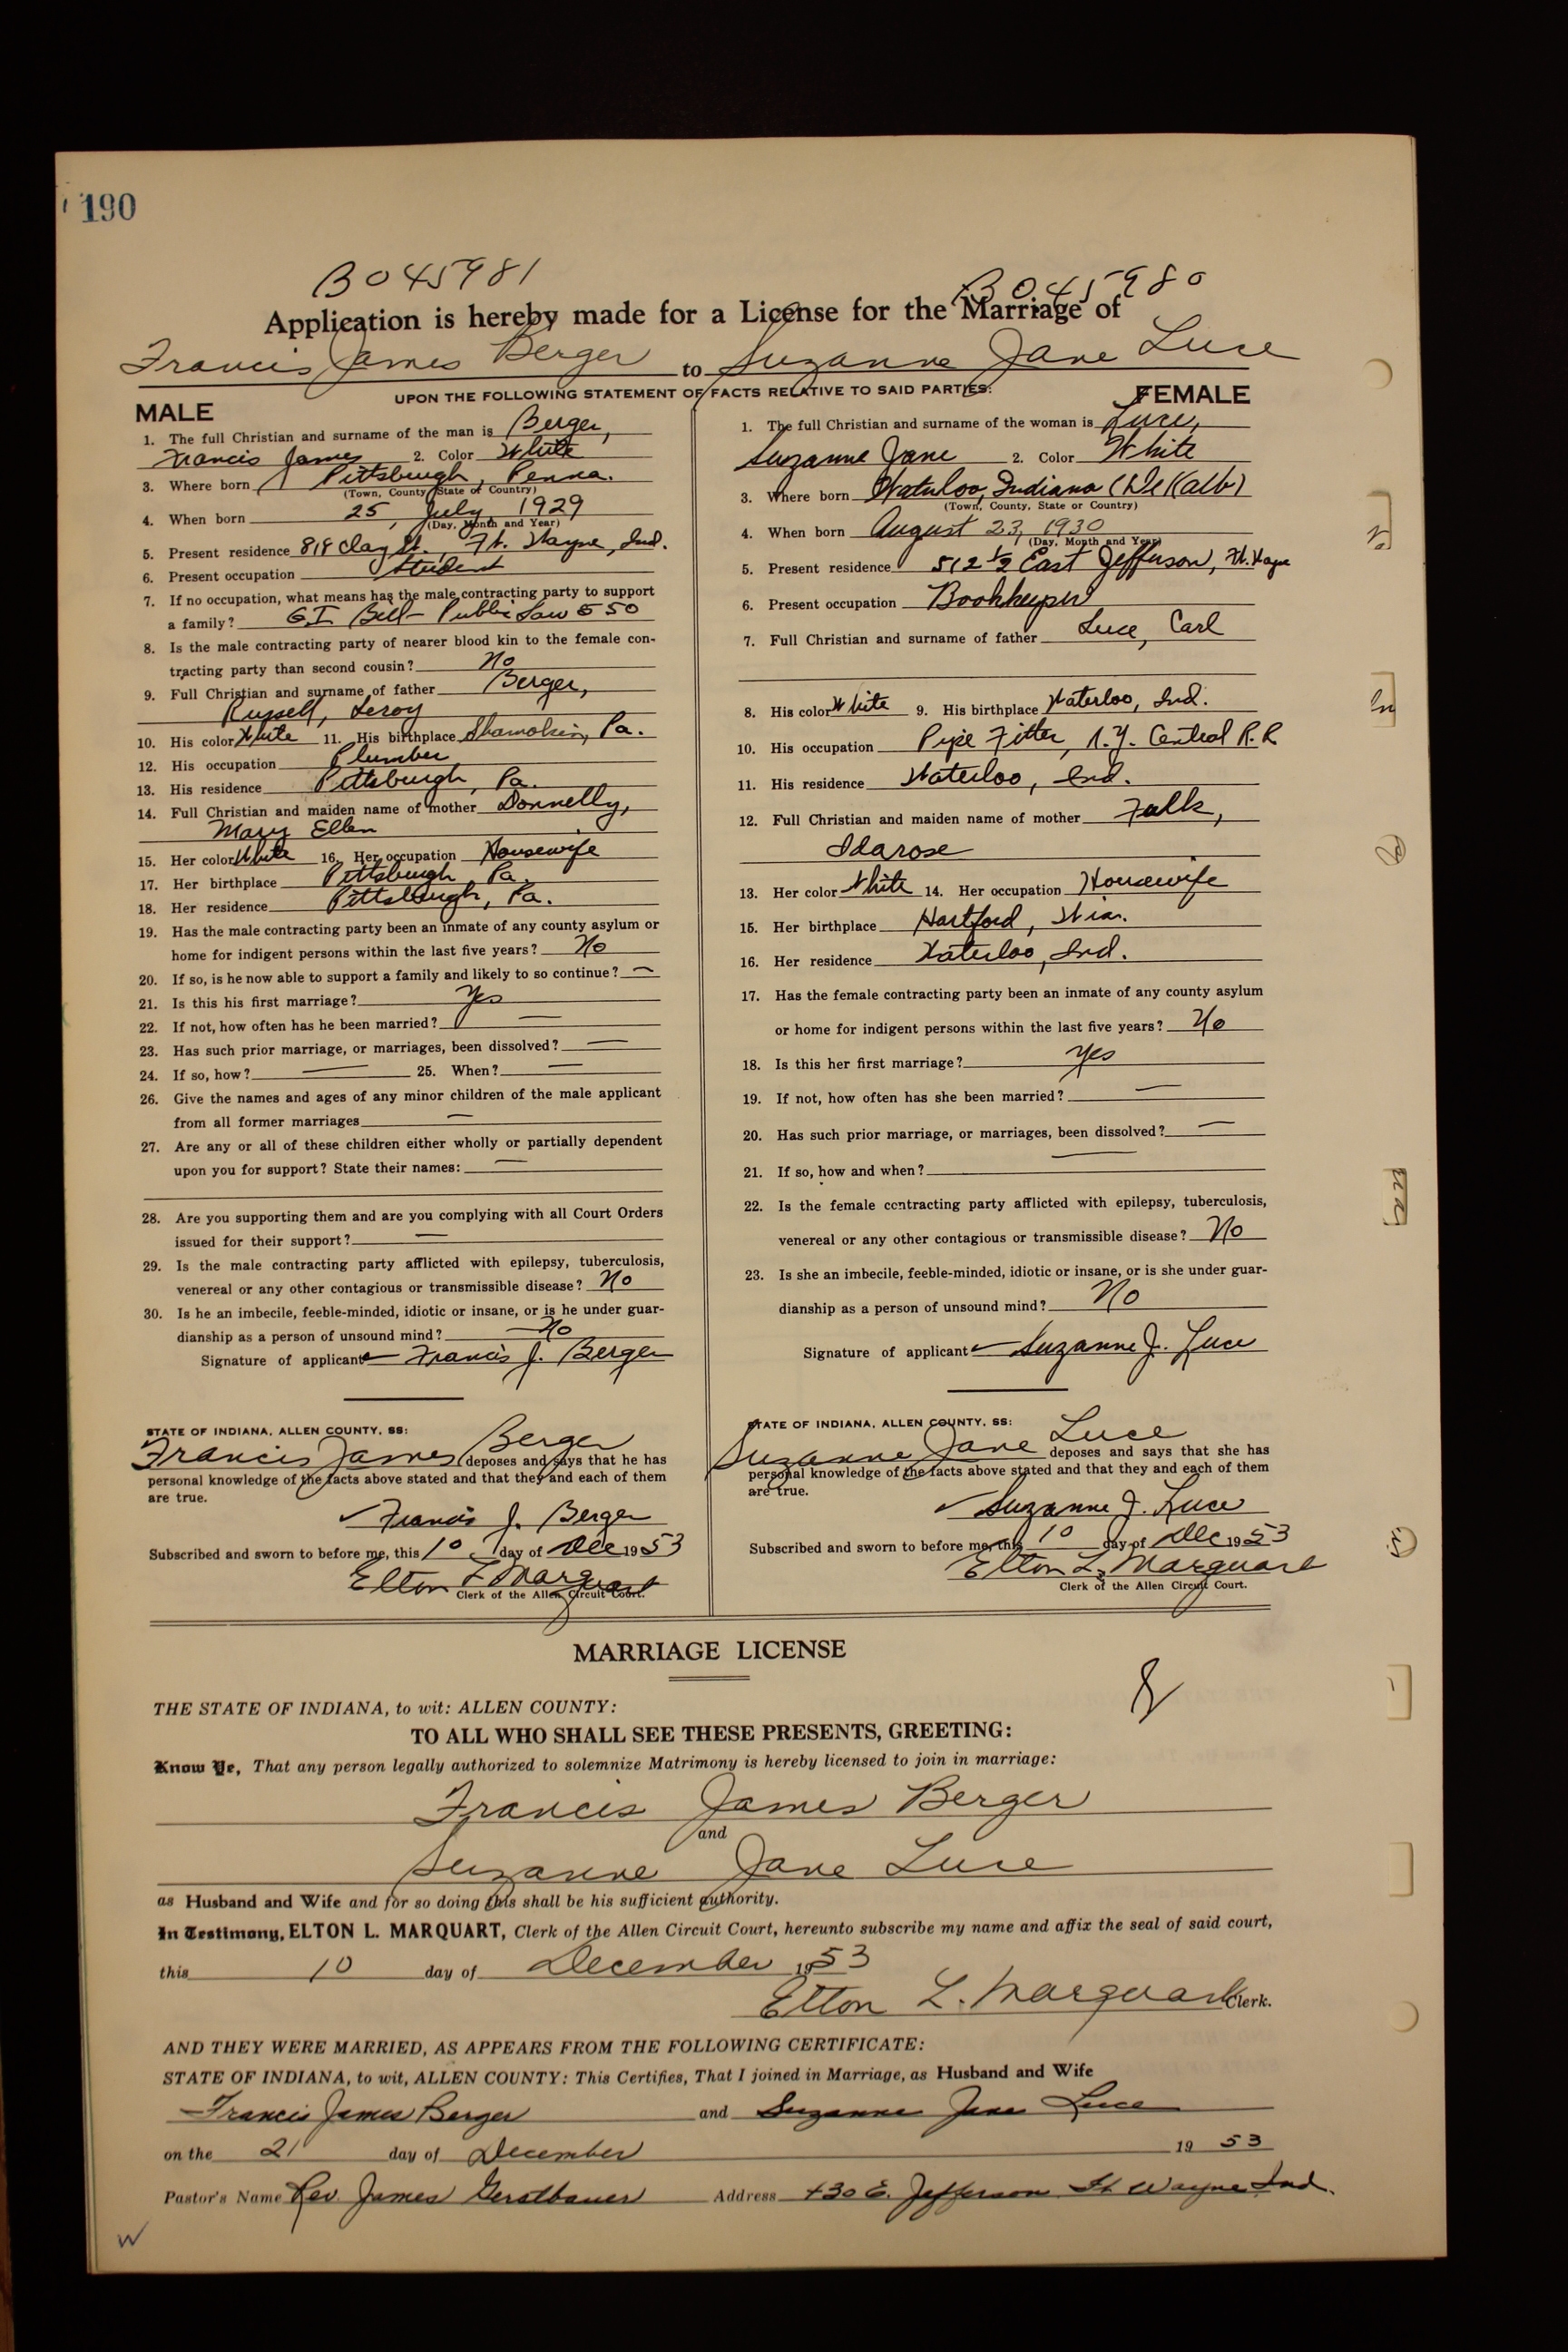 190
B045981
B045980
Application is hereby made for a License for the Marriage of
Francis James Berger to Suzanne Jane Luce
UPON THE FOLLOWING STATEMENT OF FACTS RELATIVE TO SAID PARTIES:
MALE
1. The full Christian and surname of the man is Berger,
Francis James 2. Color White
3. Where born Pittsburgh, Penna.
(Town, County State or Country)
4. When born 25, July, 1929
(Day, Month and Year)
5. Present residence 818 Clay St., Ft. Wayne, Ind.
6. Present occupation Student
7. If no occupation, what means has the male contracting party to support
a family? G.I Bill - Public Law 550
8. Is the male contracting party of nearer blood kin to the female con-
tracting party than second cousin? No
9. Full Christian and surname of father Berger,
Russell, Leroy
10. His color White 11. His birthplace Shamokin, Pa.
12. His occupation Plumber
13. His residence Pittsburgh, Pa.
14. Full Christian and maiden name of mother Donnelly,
Mary Ellen
15. Her color White 16. Her occupation Housewife
17. Her birthplace Pittsburgh, Pa.
18. Her residence Pittsburgh, Pa.
19. Has the male contracting party been an inmate of any county asylum or
home for indigent persons within the last five years? No
20. If so, is he now able to support a family and likely to so continue? —
21. Is this his first marriage? Yes
22. If not, how often has he been married? —
23. Has such prior marriage, or marriages, been dissolved? —
24. If so, how? — 25. When? —
26. Give the names and ages of any minor children of the male applicant
from all former marriages —
27. Are any or all of these children either wholly or partially dependent
upon you for support? State their names: —
28. Are you supporting them and are you complying with all Court Orders
issued for their support? —
29. Is the male contracting party afflicted with epilepsy, tuberculosis,
venereal or any other contagious or transmissible disease? No
30. Is he an imbecile, feeble-minded, idiotic or insane, or is he under guar-
dianship as a person of unsound mind? No
Signature of applicant Francis J. Berger
STATE OF INDIANA, ALLEN COUNTY, SS:
Francis James Berger deposes and says that he has
personal knowledge of the facts above stated and that they and each of them
are true.
Francis J. Berger
Subscribed and sworn to before me, this 10 day of Dec 1953
Elton L Marquart
Clerk of the Allen Circuit Court.
FEMALE
1. The full Christian and surname of the woman is Luce,
Suzanne Jane 2. Color White
3. Where born Waterloo, Indiana (DeKalb)
(Town, County, State or Country)
4. When born August 23, 1930
(Day, Month and Year)
5. Present residence 512 ½ East Jefferson, Ft. Wayne
6. Present occupation Bookkeeper
7. Full Christian and surname of father Luce, Carl
8. His color White 9. His birthplace Waterloo, Ind.
10. His occupation Pipe Fitter, N.Y. Central R.R
11. His residence Waterloo, Ind.
12. Full Christian and maiden name of mother Falk,
Idarose
13. Her color White 14. Her occupation Housewife
15. Her birthplace Hartford, Wis.
16. Her residence Waterloo, Ind.
17. Has the female contracting party been an inmate of any county asylum
or home for indigent persons within the last five years? No
18. Is this her first marriage? Yes
19. If not, how often has she been married? —
20. Has such prior marriage, or marriages, been dissolved? —
21. If so, how and when? —
22. Is the female contracting party afflicted with epilepsy, tuberculosis,
venereal or any other contagious or transmissible disease? No
23. Is she an imbecile, feeble-minded, idiotic or insane, or is she under guar-
dianship as a person of unsound mind? No
Signature of applicant Suzanne J. Luce
STATE OF INDIANA, ALLEN COUNTY, SS:
Suzanne Jane Luce deposes and says that she has
personal knowledge of the facts above stated and that they and each of them
are true.
Suzanne J. Luce
Subscribed and sworn to before me, this 10 day of Dec 1953
Elton L. Marquart
Clerk of the Allen Circuit Court.
MARRIAGE LICENSE
8
THE STATE OF INDIANA, to wit: ALLEN COUNTY:
TO ALL WHO SHALL SEE THESE PRESENTS, GREETING:
Know Ye, That any person legally authorized to solemnize Matrimony is hereby licensed to join in marriage:
Francis James Berger
and
Suzanne Jane Luce
as Husband and Wife and for so doing this shall be his sufficient authority.
In Testimony, ELTON L. MARQUART, Clerk of the Allen Circuit Court, hereunto subscribe my name and affix the seal of said court,
this 10 day of December 1953
Elton L. Marquart Clerk.
AND THEY WERE MARRIED, AS APPEARS FROM THE FOLLOWING CERTIFICATE:
STATE OF INDIANA, to wit, ALLEN COUNTY: This Certifies, That I joined in Marriage, as Husband and Wife
Francis James Berger and Suzanne Jane Luce
on the 21 day of December 1953
Pastor's Name Rev. James Gerstbauer Address 430 E. Jefferson Ft Wayne Ind.
W